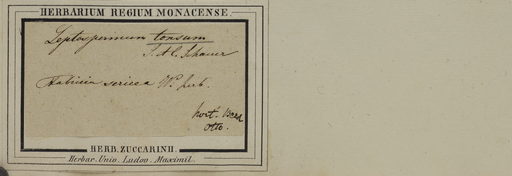 HERBARIUM REGIUM MONACENSE.
Leptospermum tonsum
Fabricia sericea W. herb.
hort.
Otto.
HERB. ZUCCARINII
Herbar. Univ. Ludov. Maximil.